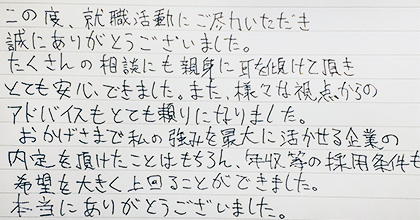 この度、就職活動にご尽力いただき
誠にありがとうございました。
たくさんの相談にも親身に耳を傾けて頂き
とても安心できました。また、様々な視点からの
アドバイスもとても頼りになりました。
おかげさまで私の強みを最大に活かせる企業の
内定を頂けたことはもちろん、年収等の採用条件も
希望を大きく上回ることができました。
本当にありがとうございました。